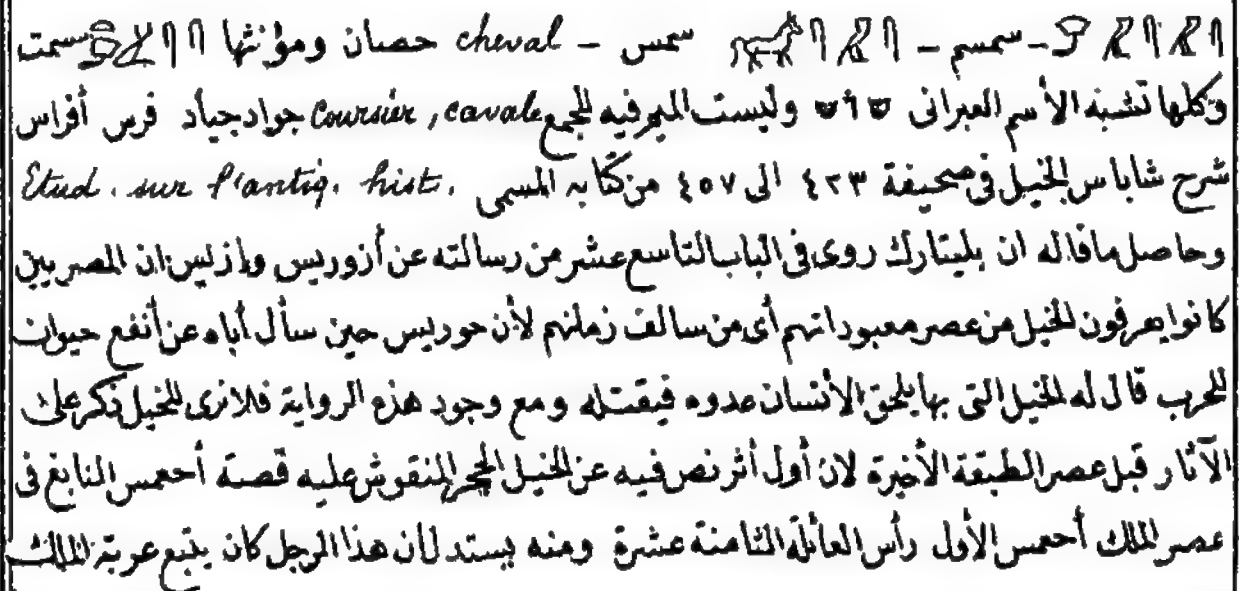 𓋴𓌳𓋴𓌳 – سمسم – 𓋴𓌳𓋴𓃗 سمس – cheval حصان ومؤنثها 𓋴𓋴𓌳 سسمت
وكلها تشبه الأسم العبرانى סוס وليست الميم فيه للجمع coursier, cavale جواد جياد فرس أفراس
شرح شاباس الخيل فى صحيفة ٤٢٣ الى ٤٥٧ من كتابه المسمى Etud. sur l'antiq. hist.
وحاصل ماقاله ان بليتارك روى فى الباب التاسع عشر من رسالته عن أزوريس وإزليس ان المصريين
كانوا يعرفون الخيل من عصر معبوداتهم أى من سالف زمانهم لأن حوريس حين سأل أباه عن أنفع حيوان
للحرب قال له الخيل التى بها يلحق الأنسان عدوه فيقتله ومع وجود هذه الرواية فلانرى للخيل ذكر على
الآثار قبل عصر الطبقة الأخيرة لان أول أثر نص فيه عن الخيل الحجر المنقوش عليه قصة أحعمس النابغ فى
عصر الملك أحعمس الأول رأس العائلة الثامنة عشرة ومنه يستدل ان هذا الرجل كان يتبع عربة الملك